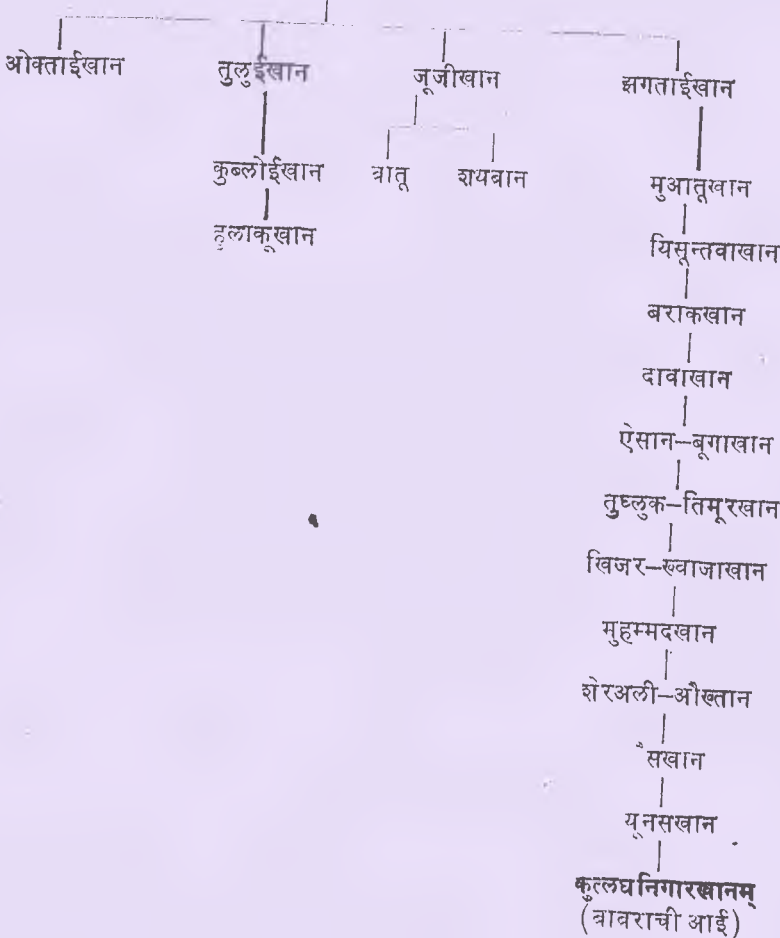 ओक्ताईखान तुलुईखान जूजीखान झगताईखान
कुब्लोईखान बातू शयबान मुआतूखान
हुलाकूखान यिसून्तवाखान
बराकखान
दावाखान
ऐसान–बूगाखान
तुघ्लुक–तिमूरखान
खिजर–ख्वाजाखान
मुहम्मदखान
शेरअली–औख्तान
यूनसखान
कुत्लघनिगारखानम्
(बाबराची आई)